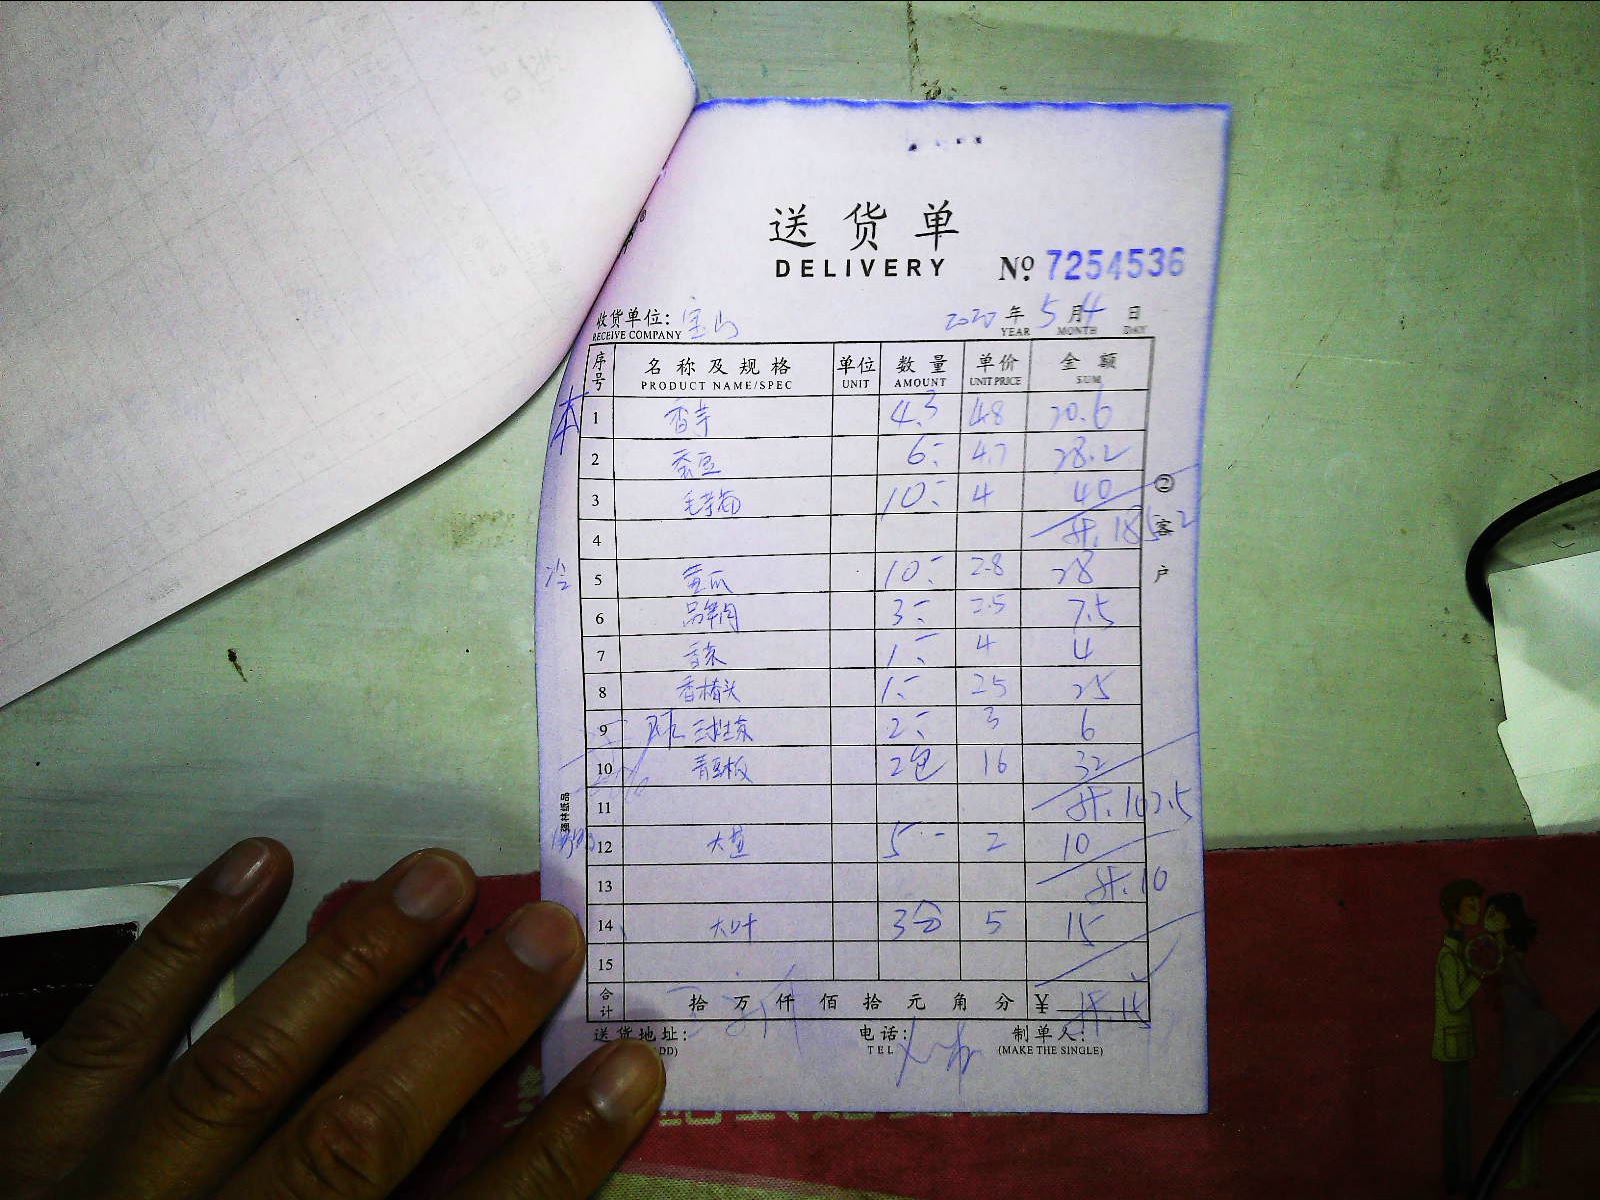 送货单
DELIVERY
No. 7254536
收货单位: 宝山 2020 年 5 月 4 日
RECEIVE COMPANY YEAR MONTH DAY
序号 名称及规格 单位 数量 单价 金额
PRODUCT NAME/SPEC UNIT AMOUNT UNIT PRICE SUM
本 1 香芋 4.3 4.8 20.6
2 蚕豆 6 4.7 28.2
3 毛芋艿 10 4 40
4 计.185.2
冷 5 黄瓜 10 2.8 28
6 3 2.5 7.5
7 香菜 1 4 4
8 香椿头 1 25 25
9 2 3 6
10 2包 16 32
11 计.102.5
12 5 2 10
13 计.10
14 大叶 3 5 15
15
合计 拾万仟佰拾元角分 ¥ 计.15
送货地址: 电话: 制单人:
DD) TEL (MAKE THE SINGLE)
②客户
强林纸品